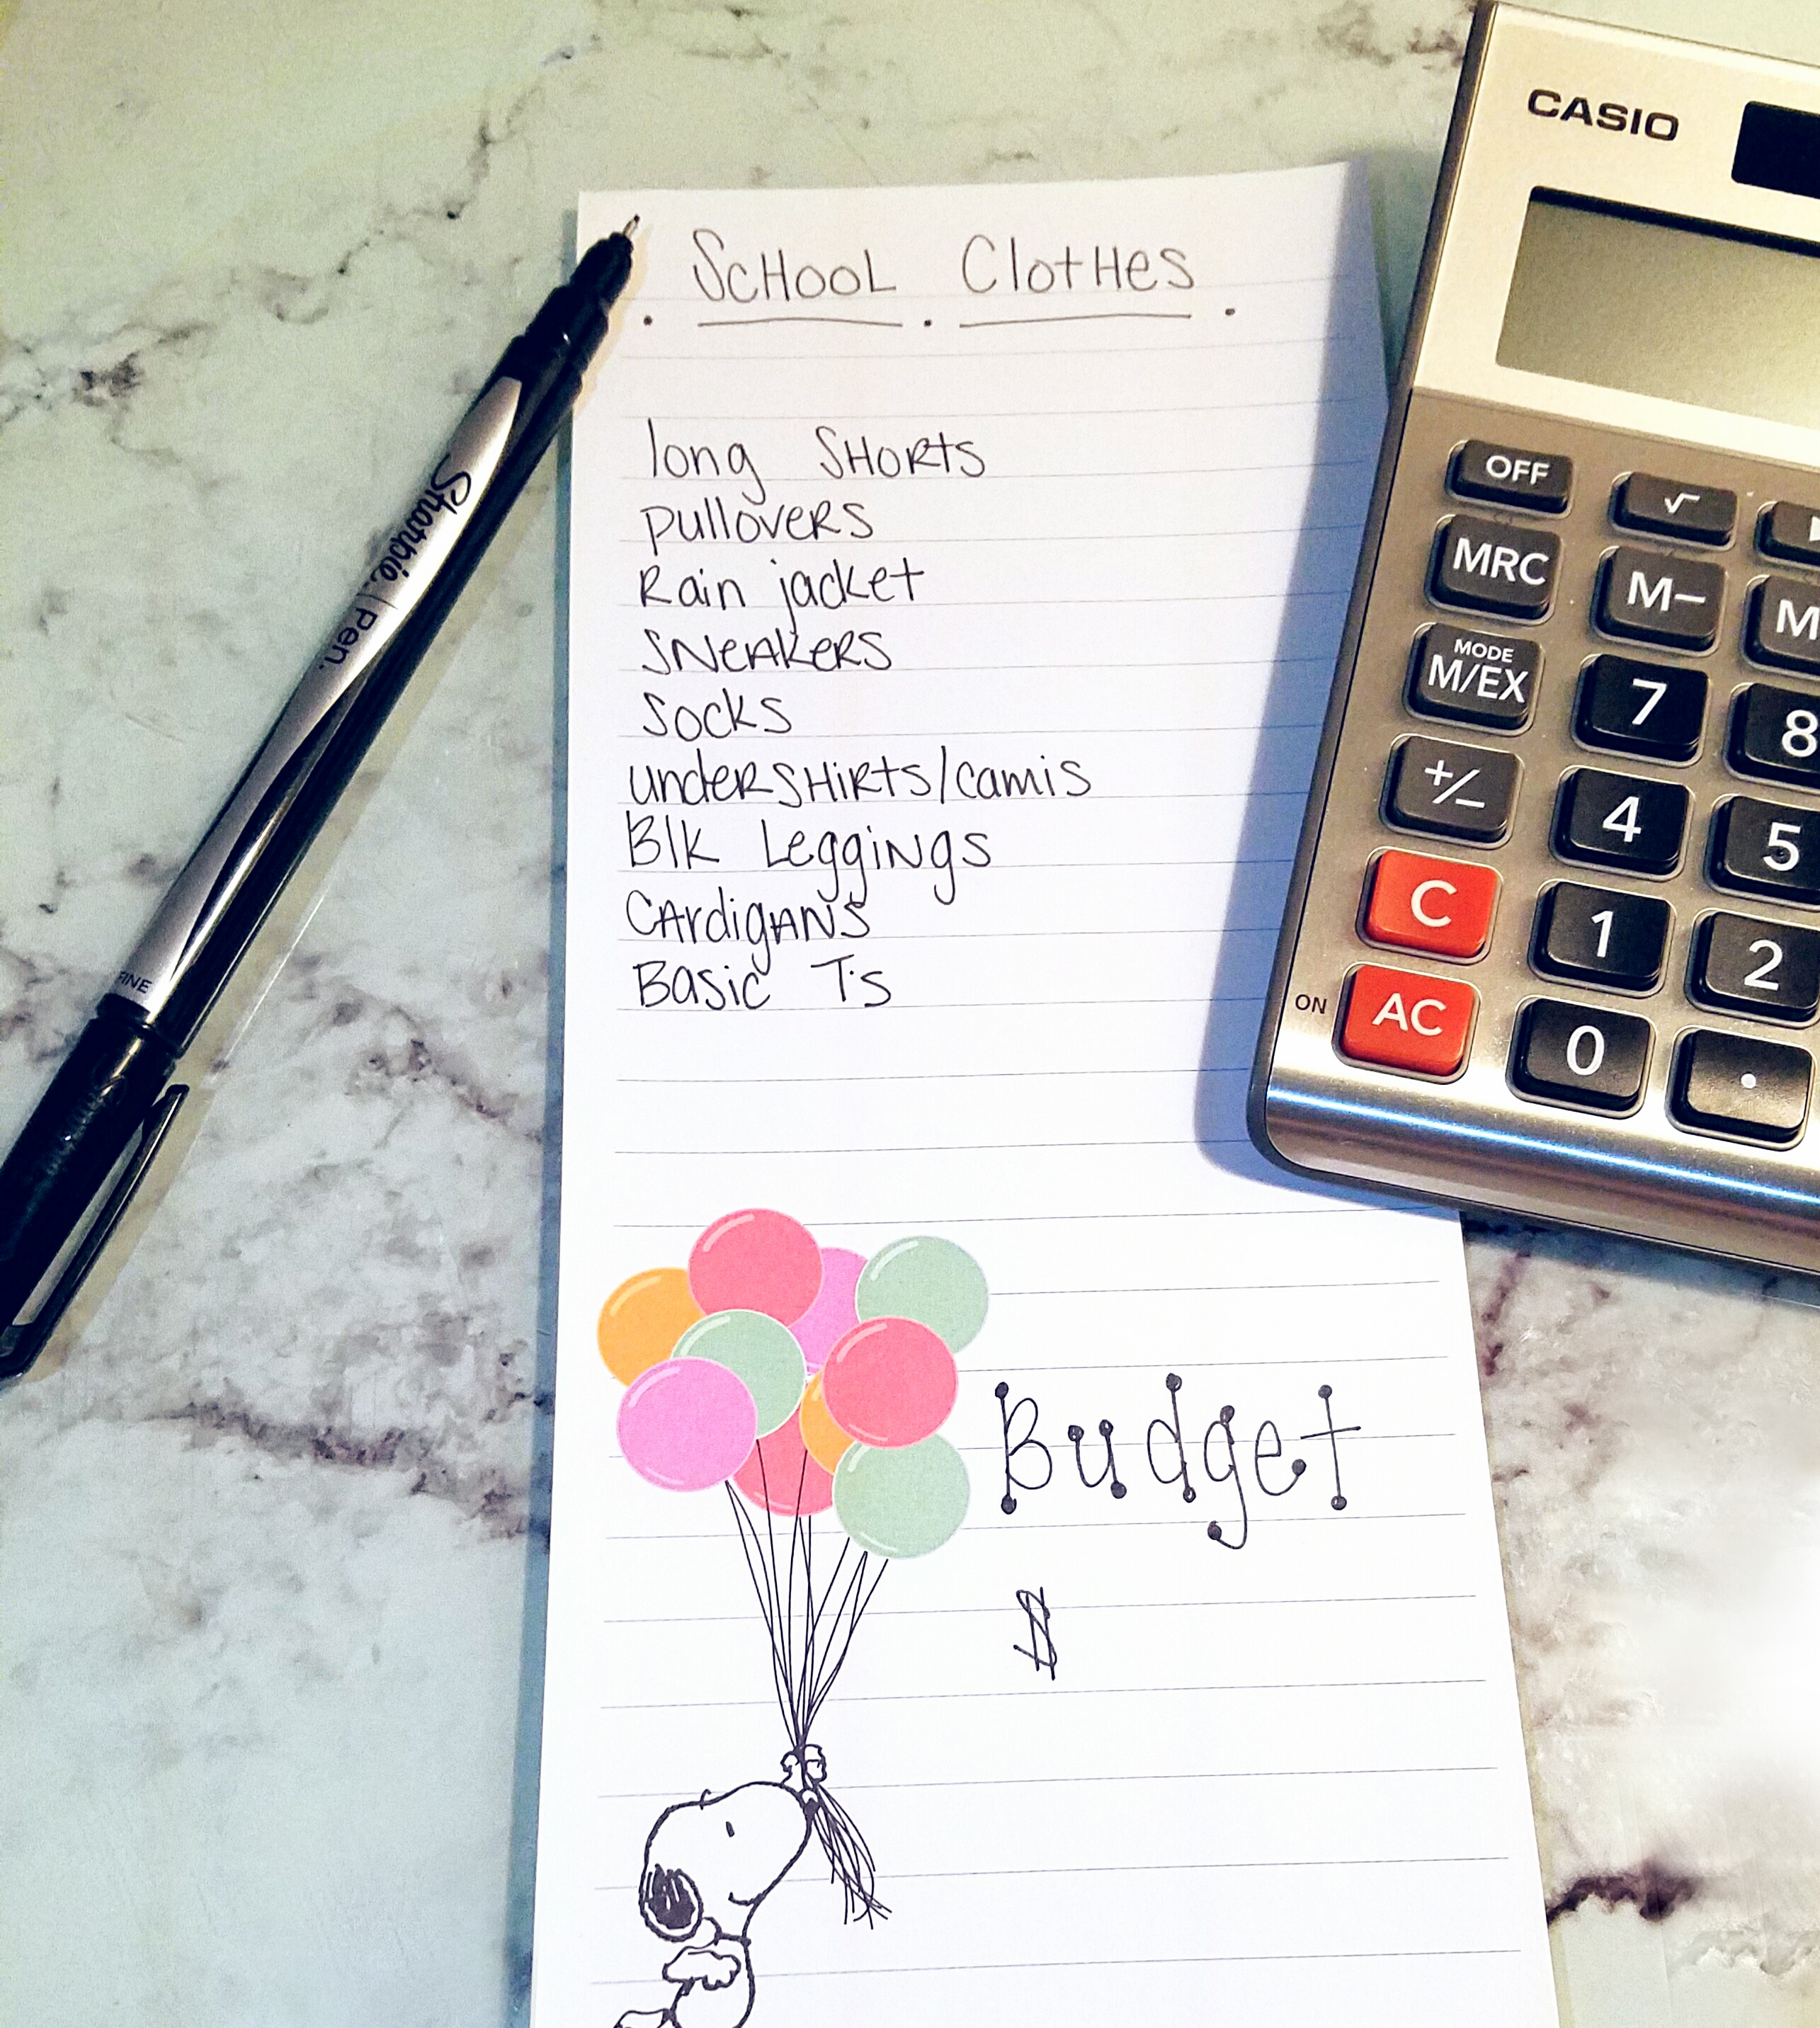 School Clothes
long Shorts
pullovers
Rain jacket
Sneakers
Socks
undershirts/camis
Blk Leggings
Cardigans
Basic T's
Budget
$
Sharpie Pen.
FINE
CASIO
OFF √
MRC M− M
MODE
M/EX 7 8
+/− 4 5
C 1 2
ON AC 0 .